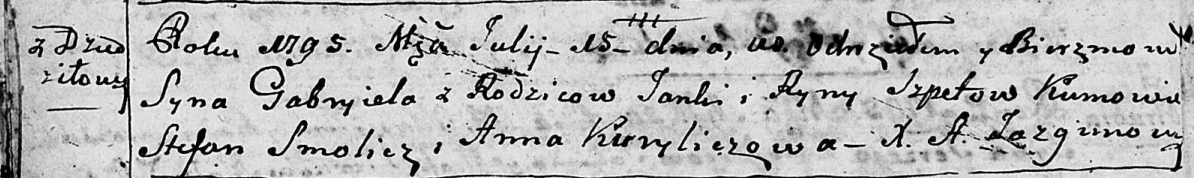 z Dziedziłowicz
Roku 1795. Mca Julij - 15 - dnia, ochrzciłem y Bierzmow
Syna Gabryiela z Rodzicow Janki i Ryny Szpetow Kumowie
Stefan Smolicz i Anna Kuryliczowa - X. A. Jazgunowicz